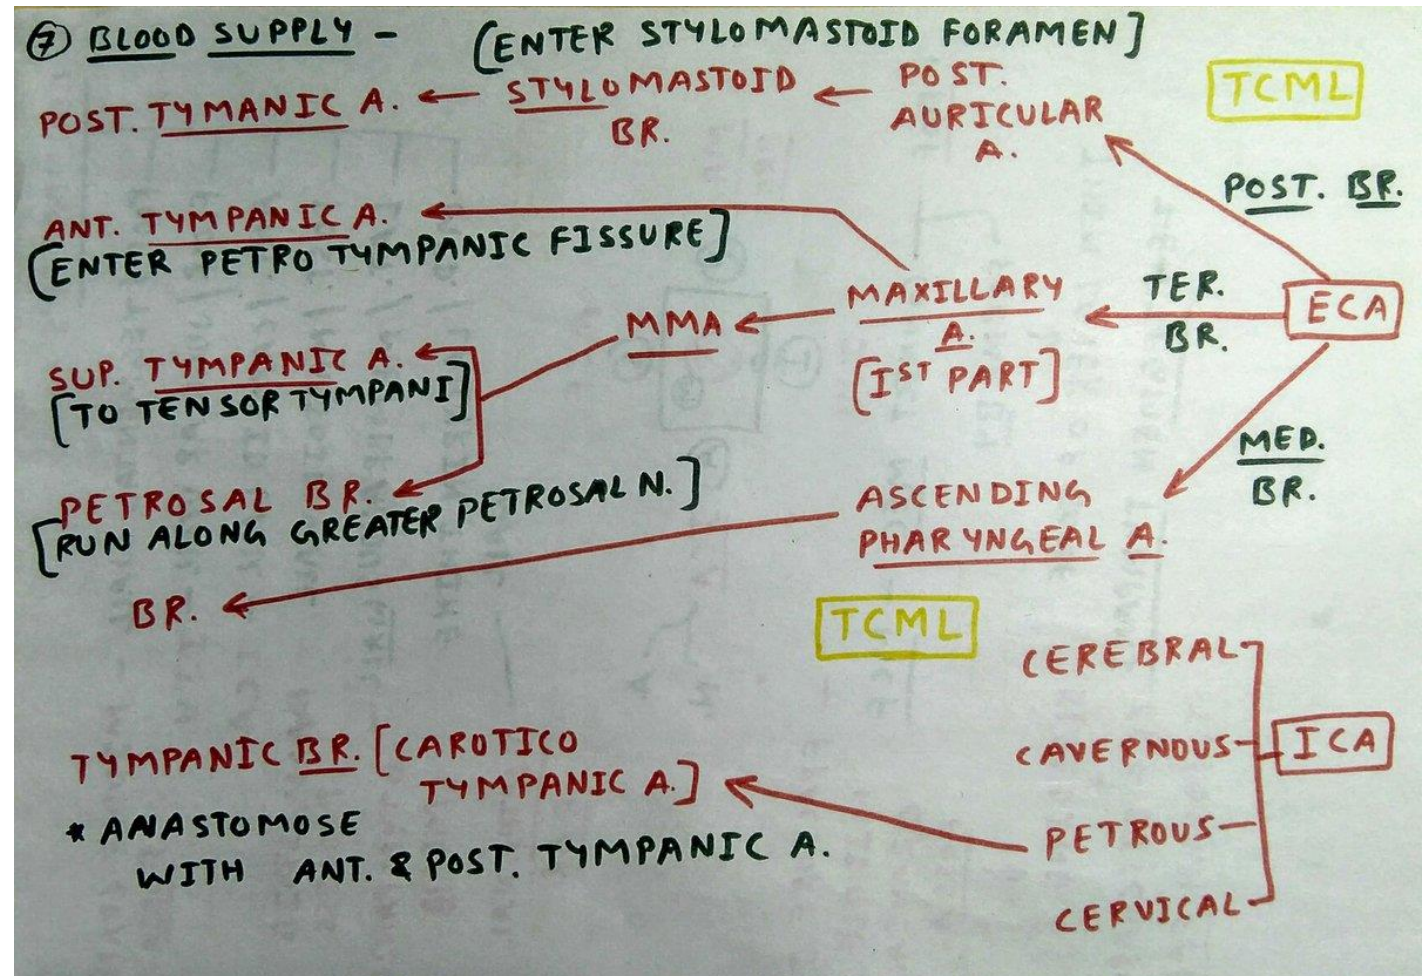 ⑦ BLOOD SUPPLY - [ENTER STYLOMASTOID FORAMEN]
TCML
POST. TYMANIC A. ← STYLOMASTOID BR. ← POST. AURICULAR A.
POST. BR.
ANT. TYMPANIC A.
[ENTER PETRO TYMPANIC FISSURE]
MMA
MAXILLARY
A.
[IST PART]
TER.
BR.
ECA
SUP. TYMPANIC A.
[TO TENSOR TYMPANI]
PETROSAL BR.
[RUN ALONG GREATER PETROSAL N.]
MED.
BR.
ASCENDING
PHARYNGEAL A.
BR.
TCML
CEREBRAL
CAVERNOUS
PETROUS
CERVICAL
ICA
TYMPANIC BR. [CAROTICO
TYMPANIC A.]
* ANASTOMOSE
WITH ANT. & POST. TYMPANIC A.